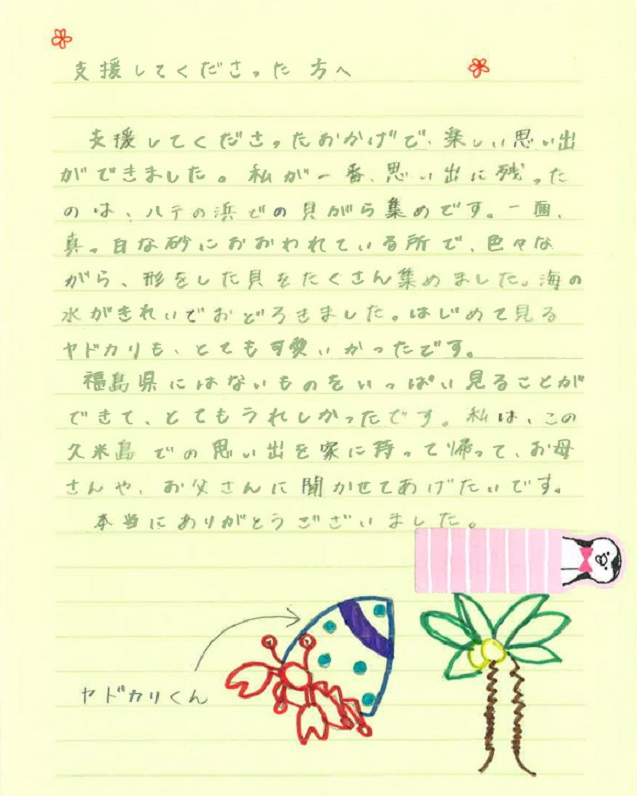 支援してくださった方へ
支援してくださったおかげで、楽しい思い出
ができました。私が一番、思い出に残った
のは、ハテの浜での貝がら集めです。一面、
真。白な砂におおわれている所で、色々な
がら、形をした貝をたくさん集めました。海の
水がきれいでおどろきました。はじめて見る
ヤドカリも、とても可愛いかったです。
福島県にはないものをいっぱい見ることが
できて、とてもうれしかったです。私は、この
久米島での思い出を家に持って帰って、お母
さんや、お父さんに聞かせてあげたいです。
本当にありがとうございました。
ヤドカリくん